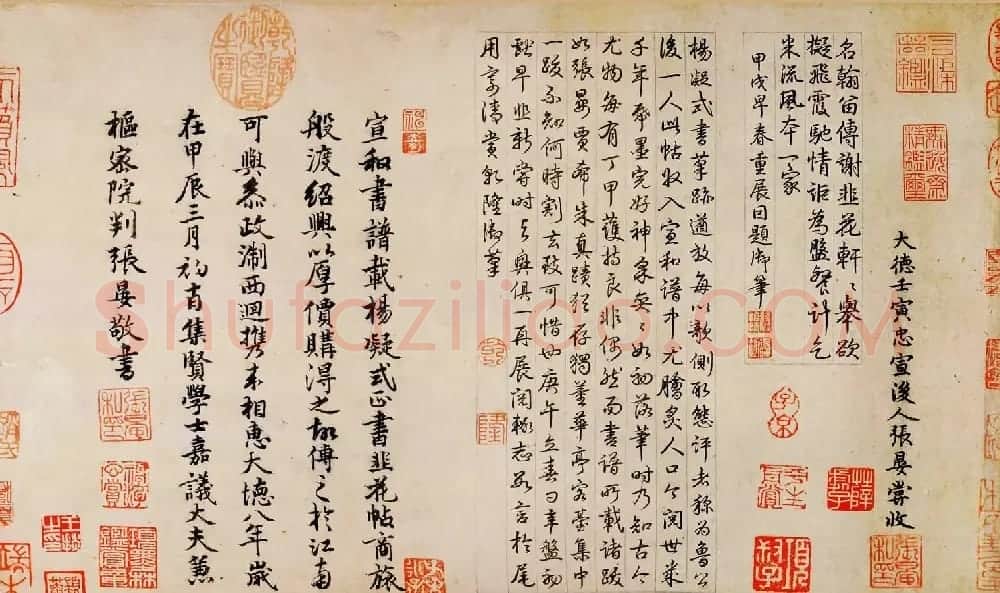 大德壬寅忠宣後人張晏嘗收
名翰留傳謝韭花軒〻舉欲
擬飛霞馳情詎為盤餐計乞
米流風本一家
甲戌早春重展因題御筆
楊凝式書草跡遒放每以欹側取態評者猶為魯公
後一人此帖收入宣和譜中尤膾炙人口今閱世來
千年楮墨完好神采奕〻如初落筆時乃知古今
尤物每有丁甲護持良非偶然而書譜所載諸跋
如張晏賈希朱真蹟猶存獨董華亭容臺集中
一跋不知何時割去致可惜也庚午立春日辛盤初
試早韭新嘗時與興俱一再展閱輒志數言於尾
用寄清賞乾隆御筆
宣和書譜載楊凝式正書韭花帖商旅
般渡紹興以厚價購得之故傳之於江南
可與叅政浙西迴携来相惠大德八年歲
在甲辰三月初吉集賢學士嘉議大夫兼
樞密院判張晏敬書
乾隆御覽之寶
Shufaziliao.COM